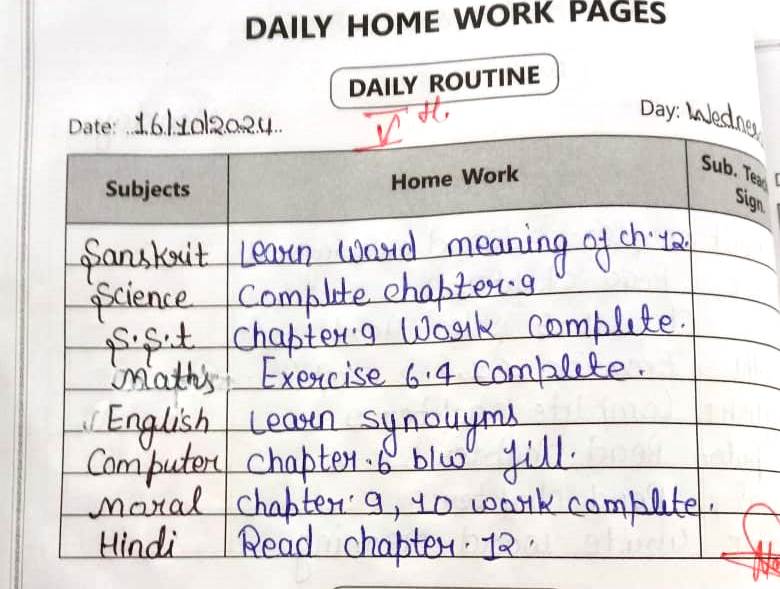 DAILY HOME WORK PAGES
DAILY ROUTINE
Date: 16/10/2024 Day: Wednes
V H.
Subjects Home Work Sub. Teac Sign
Sanskrit Learn word meaning of ch.12.
Science Complete chapter.9
S.S.t chapter.9 Work complete.
Maths Exercise 6.4 Complete.
English Learn synouyms
Computer chapter.6 b/w fill.
Moral chapter. 9, 10 work complete.
Hindi Read chapter. 12.